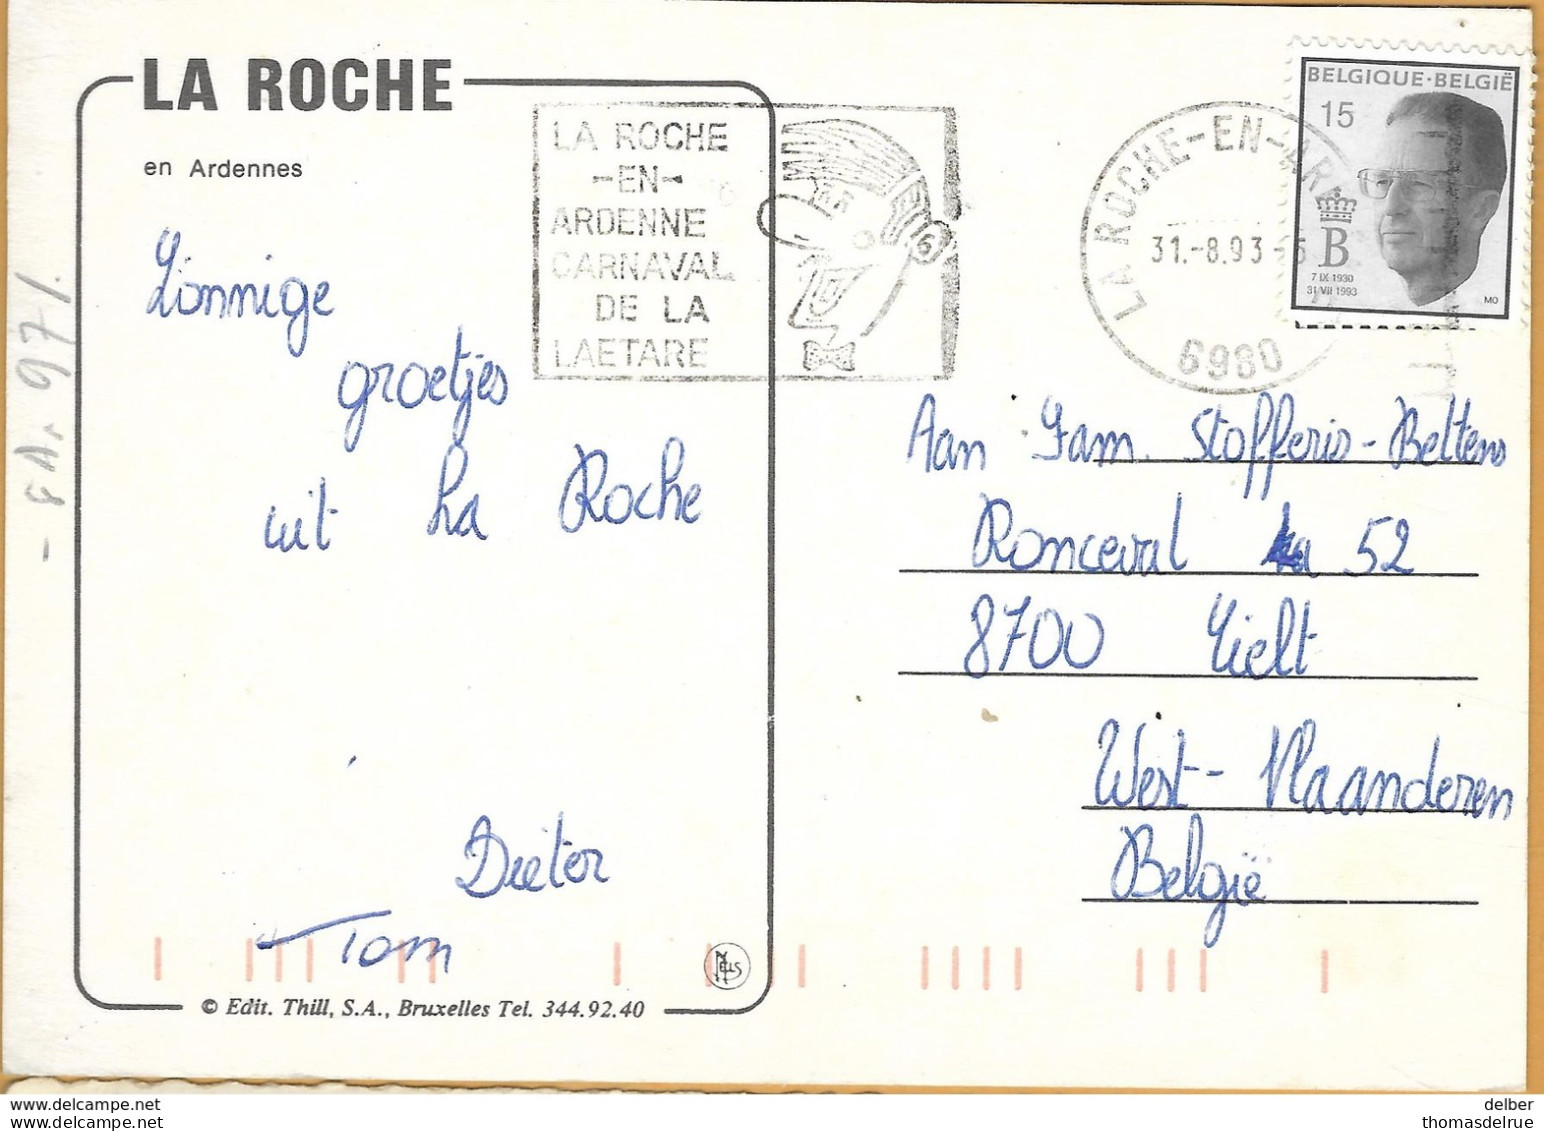 LA ROCHE
en Ardennes
LA ROCHE
-EN-
ARDENNE
CARNAVAL
DE LA
LAETARE
LA ROCHE-EN-AR
31.-8.93-
6980
BELGIQUE·BELGIË
15
B
7 IX 1930
31 VII 1993
MO
Zonnige
groetjes
uit La Roche
Dieter
Tom
Aan Fam. Stofferis-Bettens
Ronceval 52
8700 Tielt
West-Vlaanderen
België
NELS
© Edit. Thill, S.A., Bruxelles Tel. 344.92.40
www.delcampe.net
www.delcampe.net
delber
thomasdelrue